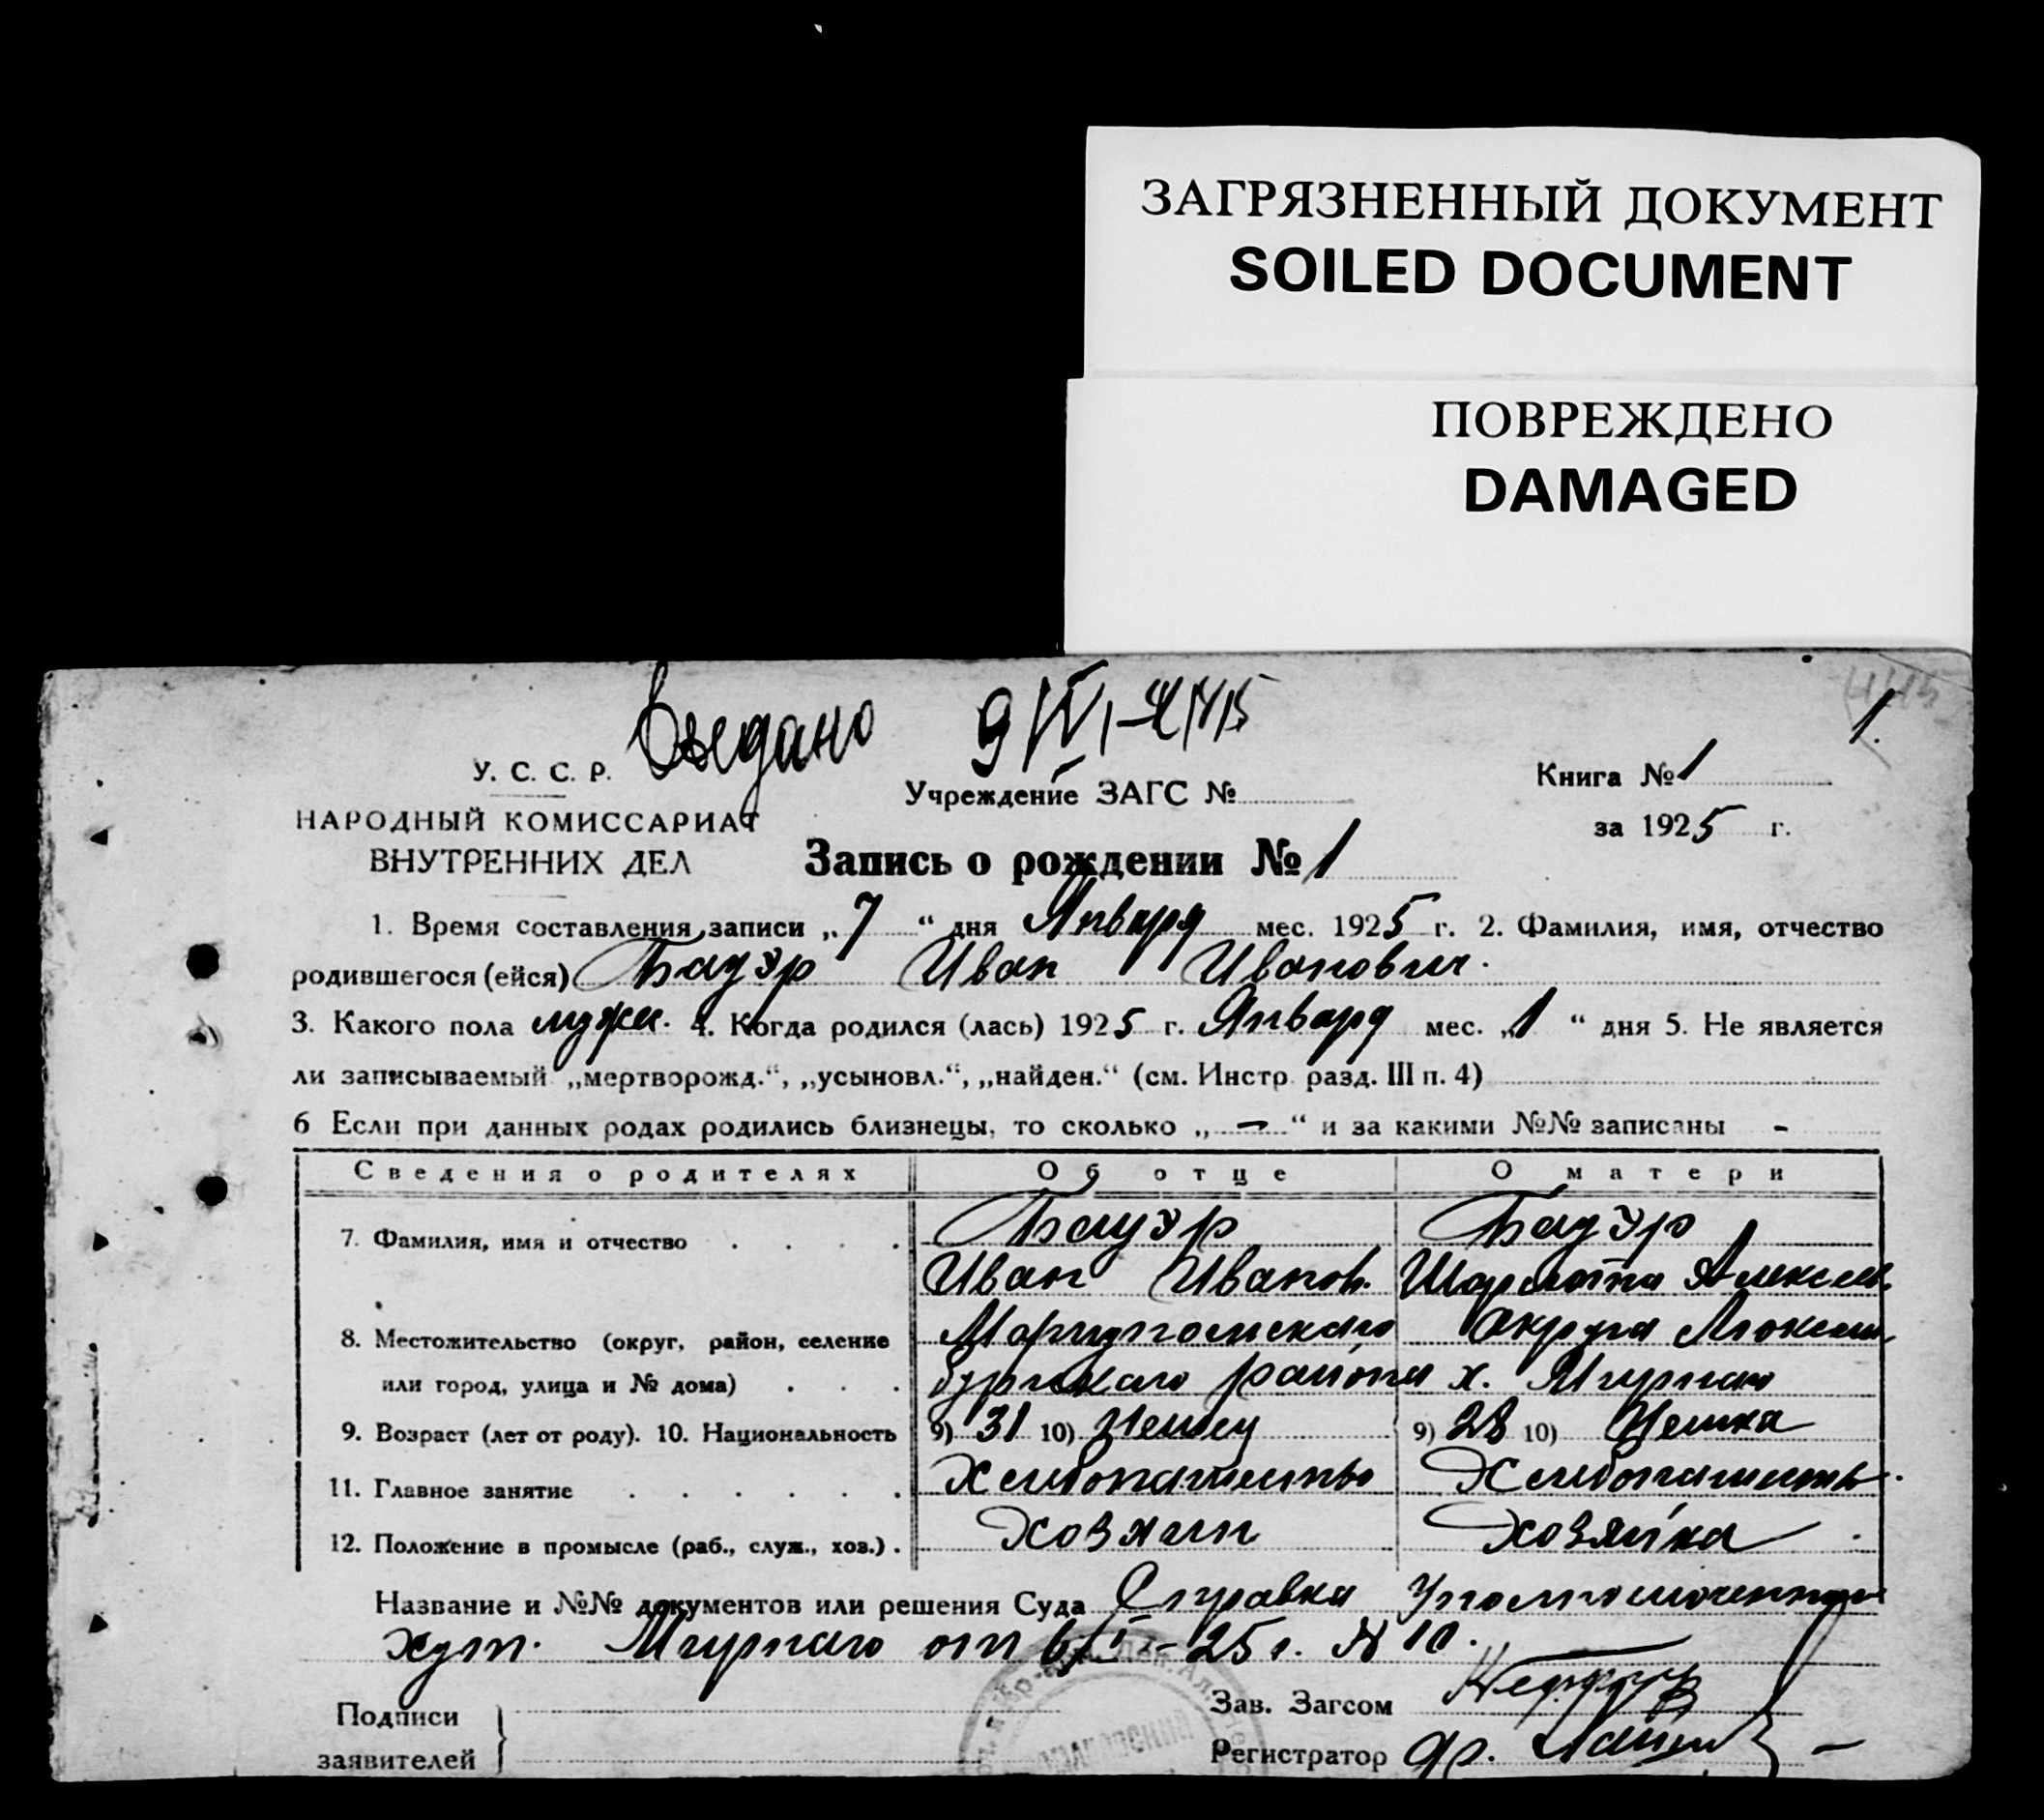 ЗАГРЯЗНЕННЫЙ ДОКУМЕНТ
SOILED DOCUMENT
ПОВРЕЖДЕНО
DAMAGED
445
1.
У. С. С. Р.
НАРОДНЫЙ КОМИССАРИАТ
ВНУТРЕННИХ ДЕЛ
Учреждение ЗАГС №
Книга № 1
за 1925 г.
Запись о рождении № 1
1. Время составления записи „7“ дня Января мес. 1925 г. 2. Фамилия, имя, отчество
родившегося (ейся) Бауэр Иван Иванович.
3. Какого пола мужск. 4. Когда родился (лась) 1925 г. Января мес. „1“ дня 5. Не является
ли записываемый „мертворожд.“, „усыновл.“, „найден.“ (см. Инстр. разд. III п. 4)
6 Если при данных родах родились близнецы, то сколько „—“ и за какими №№ записаны -
Сведения о родителях Об отце О матери
7. Фамилия, имя и отчество Бауэр Бауэр
Иван Иванов. Шарлотта Алексеев.
8. Местожительство (округ, район, селение Мариупольского Округа Люксем
или город, улица и № дома) бургского района х.
9. Возраст (лет от роду). 10. Национальность 9) 31 10) Немец 9) 28 10) Немка
11. Главное занятие Хлебопашество Хлебопашеств.
12. Положение в промысле (раб., служ., хоз.) Хозяин Хозяйка
Название и №№ документов или решения Суда Справка Уполномоченного
хут. от 6/I-25 г. № 10.
Подписи
заявителей
Зав. Загсом
Регистратор